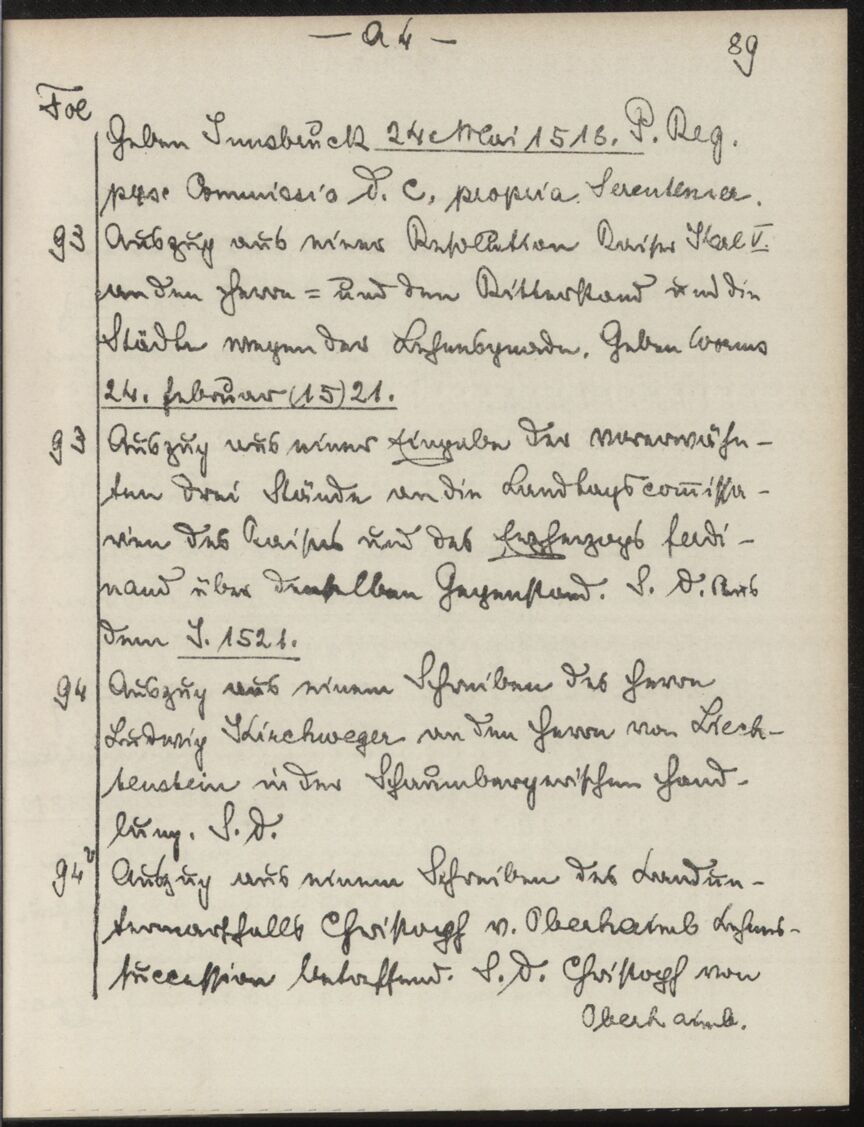 — A 4 —
89
Fol
Geben Innsbruck 24 Mai 1518. P. Reg.
Commissio D. C. propria.
93 Auszug aus einer Resolution Kaiser Karl V.
an den Herrn = und den Ritterstand und die
Städte wegen der Lehensgnade. Geben Worms
24. Februar (15)21.
93 Auszug aus einer Eingabe der vorerwähn-
ten drei Stände an die Landtagscom̄issa-
rien des Kaisers und des Erzherzogs Ferdi-
nand über denselben Gegenstand. S. D. Aus
dem J. 1521.
94 Auszug aus einem Schreiben des Herrn
Ludwig Kirchweger an den Herrn von Liech-
tenstein in der Schaumbergerischen Hand-
lung. S. D.
94v Auszug aus einem Schreiben des Landun-
termarschalls Christoph v. Oberhaimb Lehens-
succession betreffend. S. D. Christoph von
Oberhaimb.